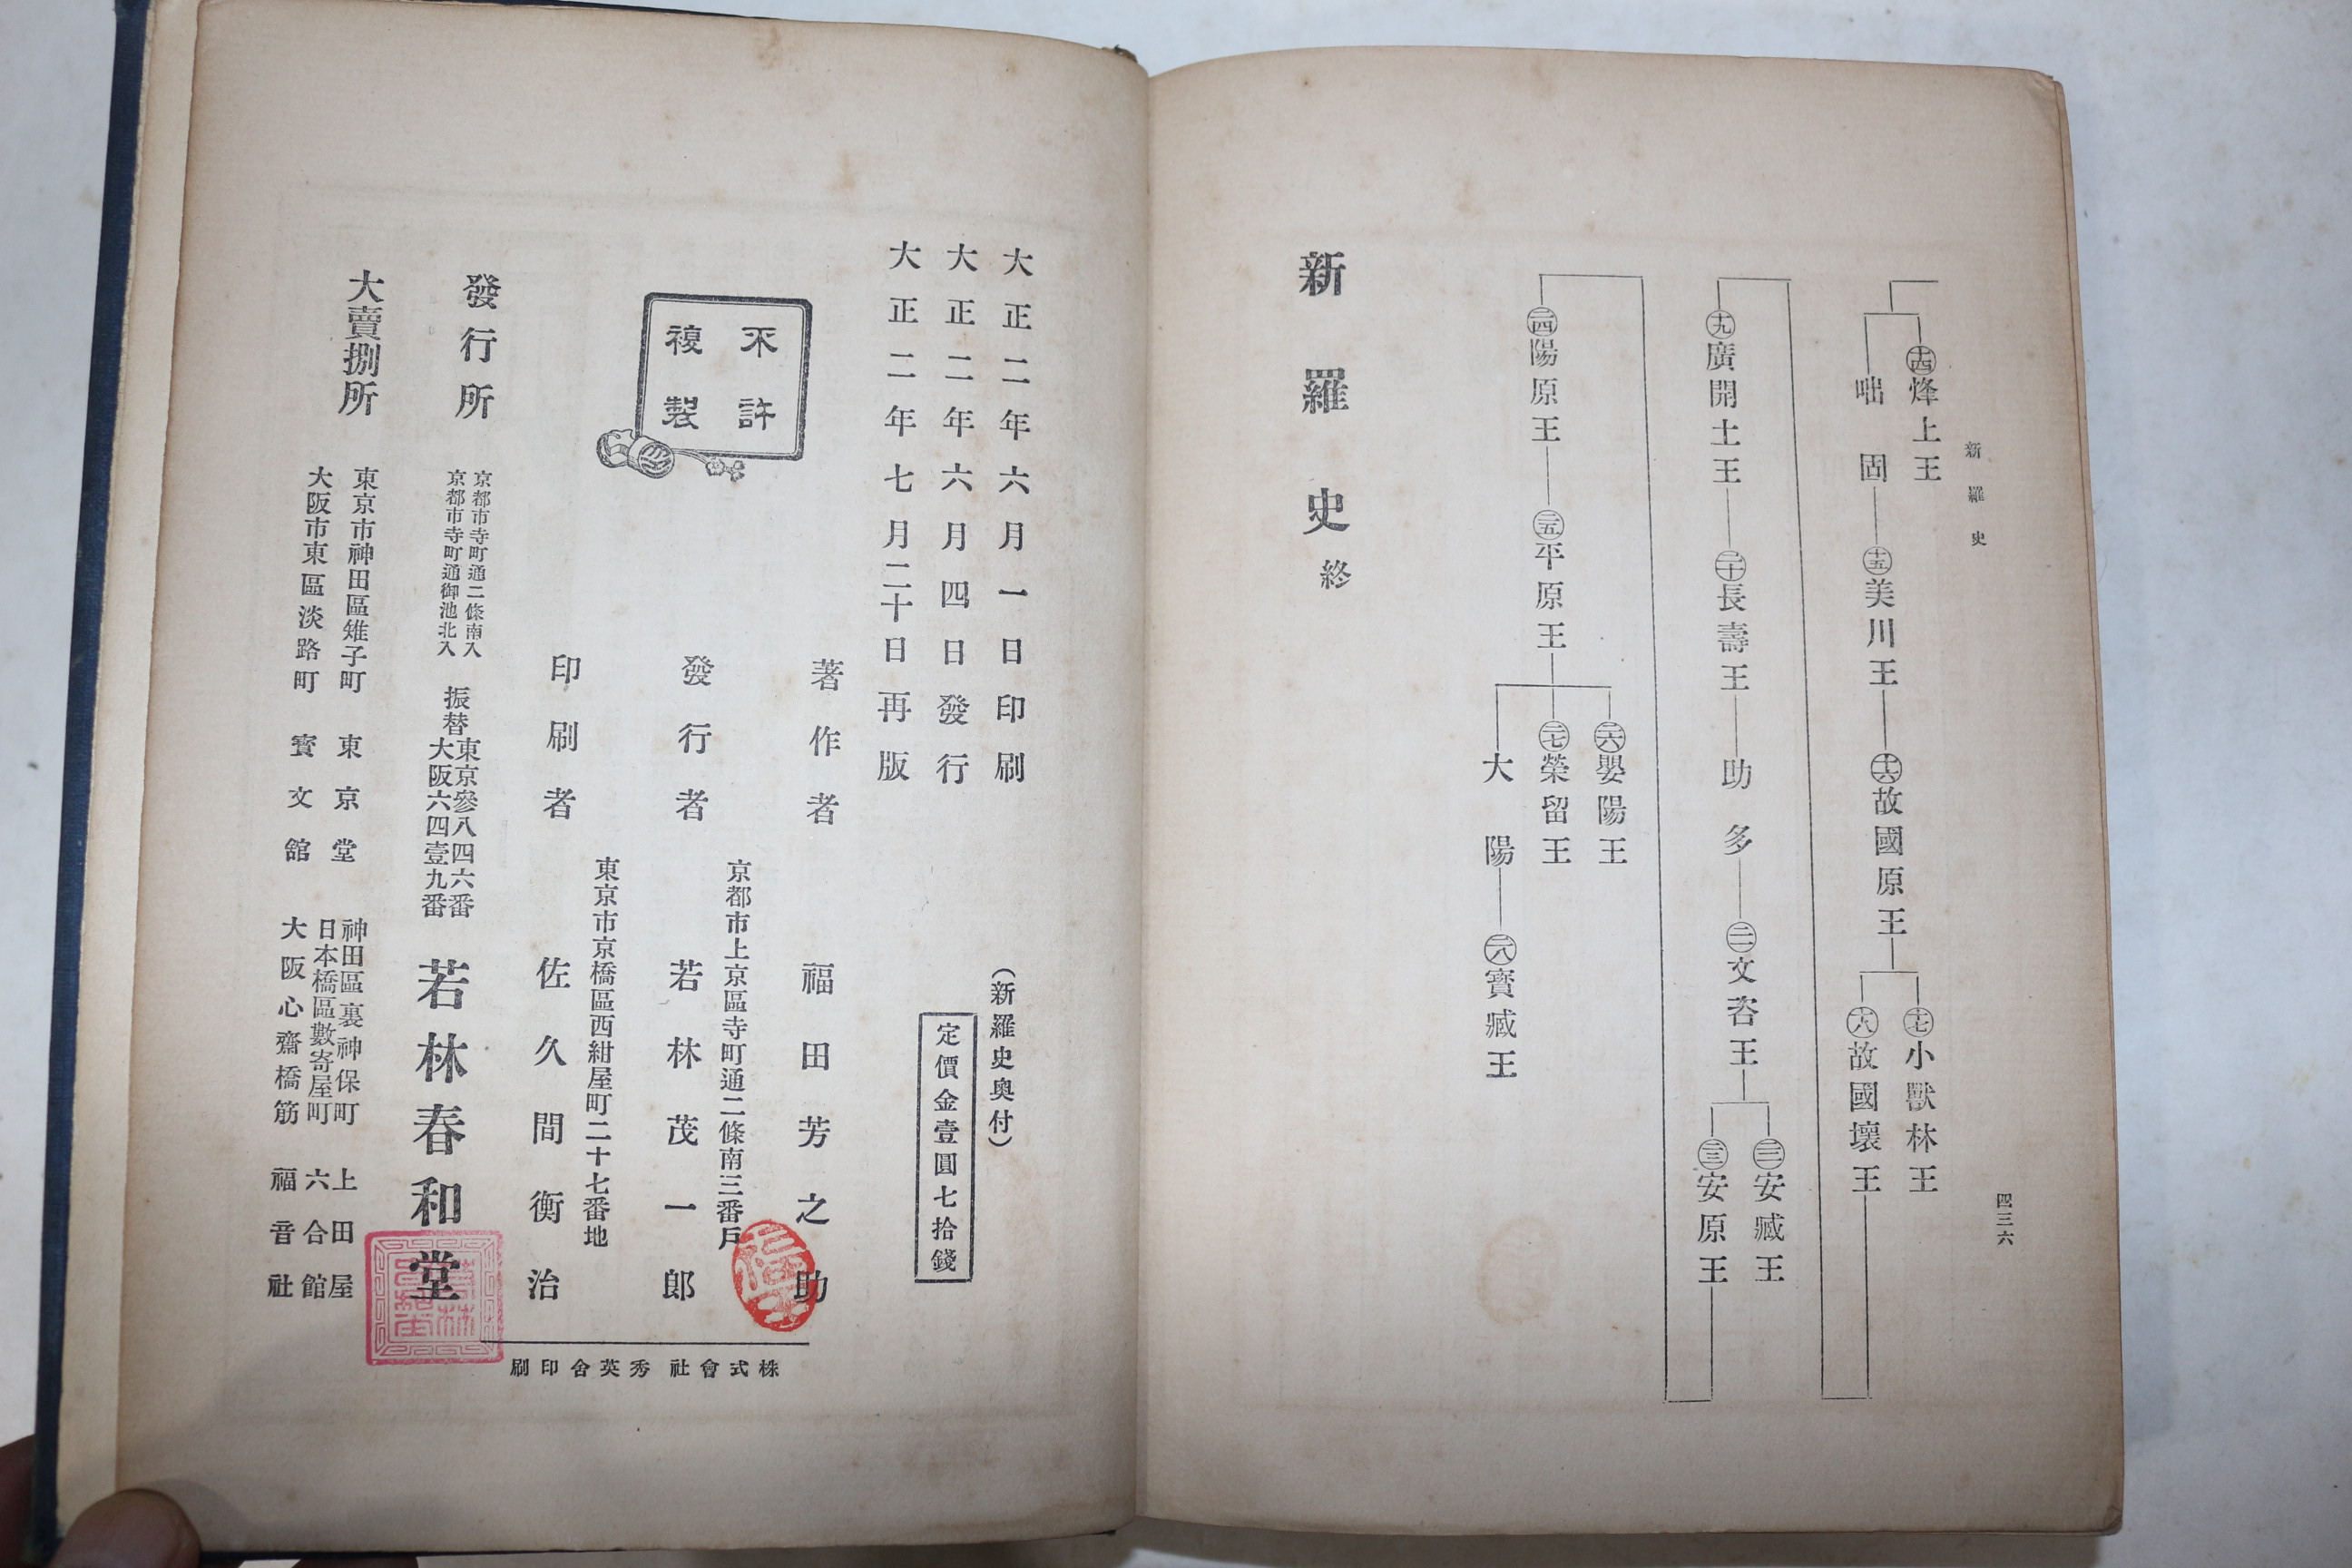 新羅史
四三六
十四烽上王
咄固
十五美川王
十六故國原王
十七小獸林王
十八故國壤王
十九廣開土王
二十長壽王
助多
二一文咨王
二二安臧王
二三安原王
二四陽原王
二五平原王
二六嬰陽王
二七榮留王
大陽
二八寶臧王
新羅史終
(新羅史奧付)
定價金壹圓七拾錢
大正二年六月一日印刷
大正二年六月四日發行
大正二年七月二十日再版
不許
複製
著作者 福田芳之助
京都市上京區寺町通二條南三番戶
發行者 若林茂一郎
東京市京橋區西紺屋町二十七番地
印刷者 佐久間衡治
株式會社 秀英舍印刷
發行所
京都市寺町通二條南入
京都市寺町通御池北入
振替
東京參八四六番
大阪六四壹九番
若林春和堂
大賣捌所
東京市神田區雉子町 東京堂
神田區裏神保町 上田屋
日本橋區數寄屋町 六合館
大阪市東區淡路町 寶文館
大阪心齋橋筋 福音社